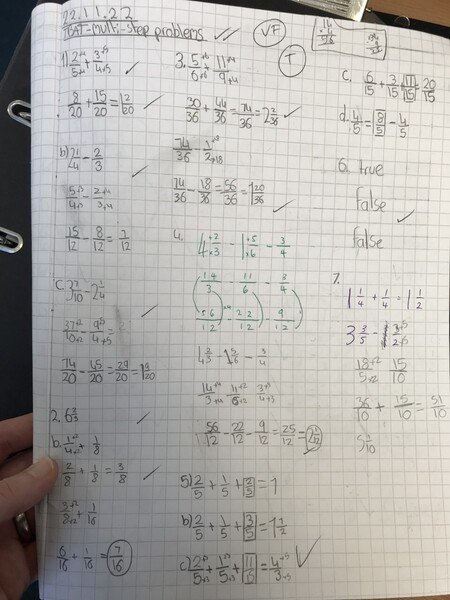 22.11.22
TBAT-multi-step problems
VF
T
1) 2/5 ×4 + 3/4 ×5
8/20 + 15/20 = 1 2/20
b) 2 1/4 - 2/3
5/4 ×3 - 2/3 ×4
15/12 - 8/12 = 7/12
C. 3 7/10 - 2 1/4
37/10 ×2 - 9/4 ×5
74/20 - 45/20 = 29/20 = 1 9/20
2. 6 2/3
b. 1/4 ×2 + 1/8
2/8 + 1/8 = 3/8
3/8 ×2 + 1/16
6/16 + 1/16 = 7/16
3. 5/6 ×6 + 11/9 ×4
30/36 + 44/36 = 74/36 = 2 2/36
74/36 - 1/2 ×18
74/36 - 18/36 = 56/36 = 1 20/36
4. 4 2/3 - 1 5/6 - 3/4
(14/3 - 11/6 - 3/4)
56/12 - 22/12 - 9/12
4 2/3 - 1 5/6 - 3/4
14/3 ×4 - 11/6 ×2 - 3/4 ×3
56/12 - 22/12 - 9/12 = 25/12 = 2 1/12
5) 2/5 + 1/5 + 2/5 = 1
b) 2/5 + 1/5 + 3/5 = 1 1/2
c) 2/5 ×3 + 1/5 ×3 + 11/6 = 4/3 ×5
C. 6/15 + 3/15 11/15 = 20/15
d. 4/5 = 8/5 - 4/5
6. true
false
false
7.
1 1/4 + 1/4 = 1 1/2
3 3/5 - 3/2 ×5
18/5 ×2 15/10
36/10 + 15/10 = 51/10
5 1/10